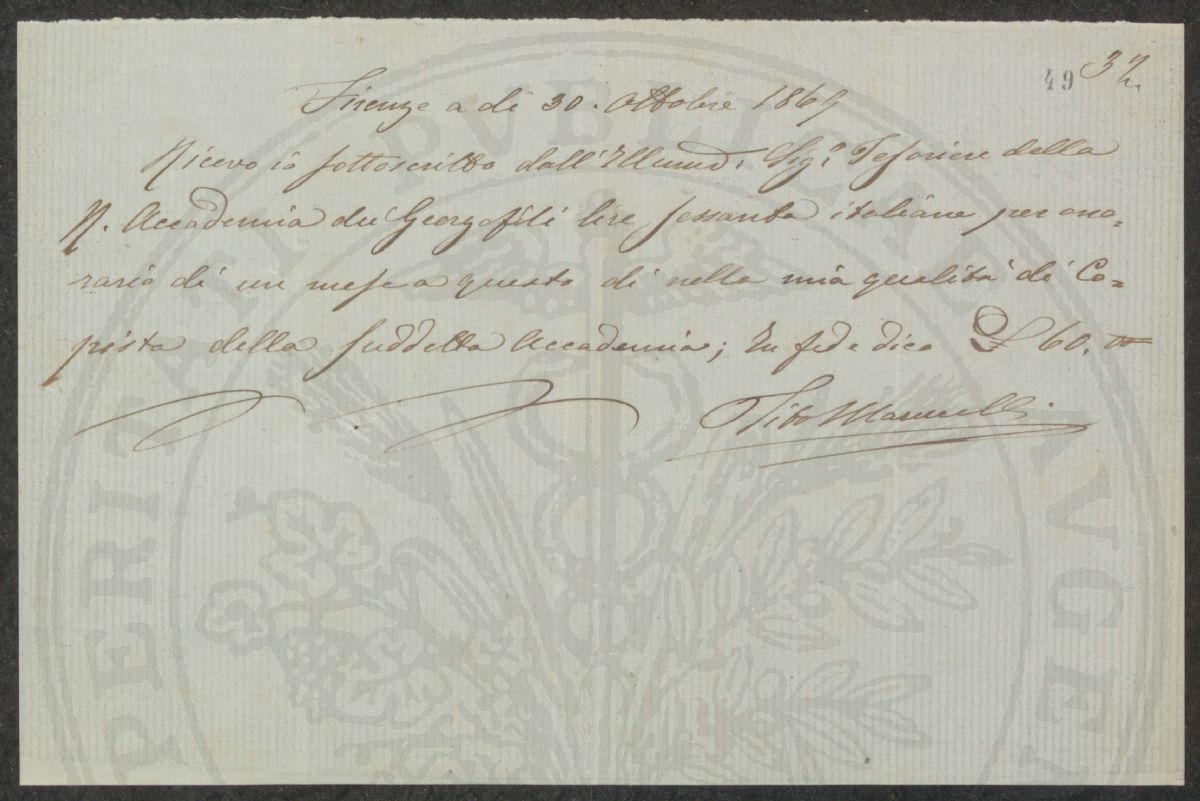 49 32
Firenze a dì 30. Ottobre 1869
Ricevo io sottoscritto dall'Illmo Sigr Tesoriere della
R. Accademia dei Georgofili lire sessanta italiane per ono=
rario di un mese a questo dì nella mia qualità di Co=
pista della suddetta Accademia; In fede dico £ 60. =
Tito Marucelli
PERITATI PVBLICAE AVGEN